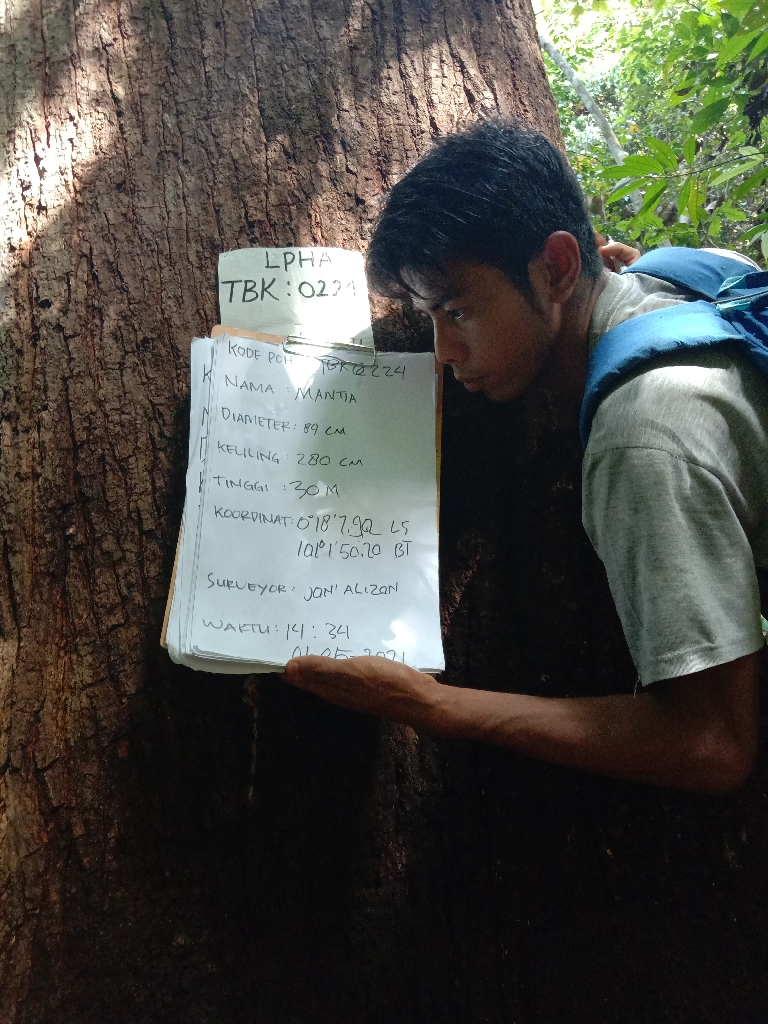 LPHA
TBK : 0224
KODE POH TBK 0224
NAMA : MANTIA
DIAMETER : 89 CM
KELILING : 280 CM
TINGGI : 30 M
KOORDINAT : 0°18'7.92 LS
101°1'50.20 BT
SURVEYOR : JON' ALIZON
WAKTU : 14 : 34